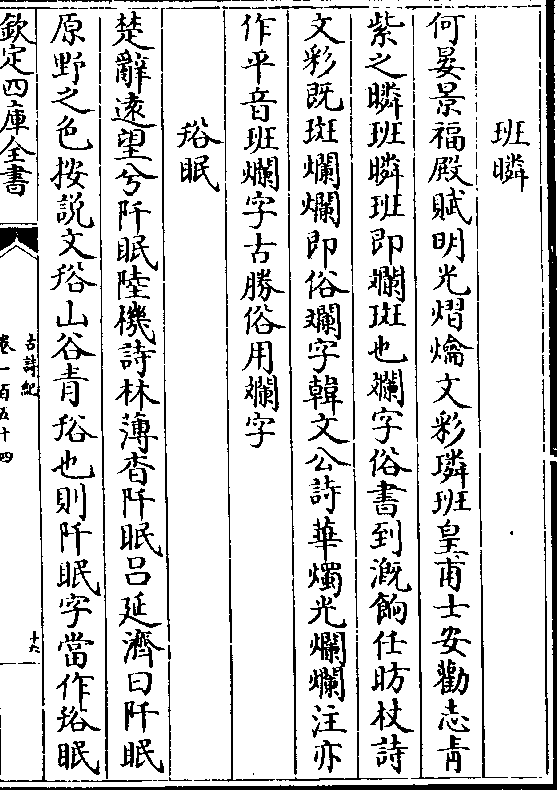 班瞵
何晏景福殿賦明光熠爚文彩璘班皇甫士安勸志青
紫之瞵班瞵班即斕斑也斕字俗書到溉餉任昉杖詩
文彩既斑爛爛即俗斕字韓文公詩華燭光爛爛注亦
作平音班爛字古勝俗用斕字
谸眠
楚辭遠望兮阡眠陸機詩林薄杳阡眠呂延濟曰阡眠
原野之色按説文谸山谷青谸也則阡眠字當作谸眠
欽定四庫全書
古詩紀
卷一百五十四